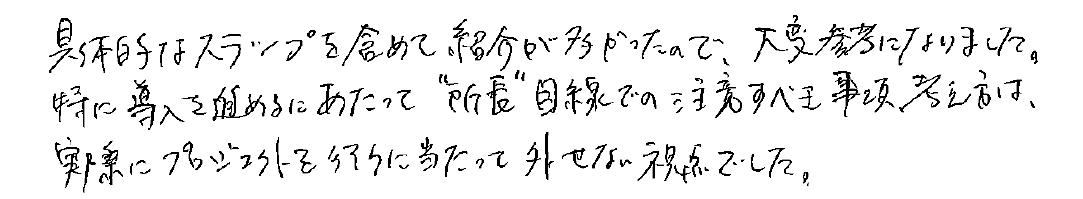 具体的なステップを含めて紹介が多かったので、大変参考になりました。
特に導入を進めるにあたって"所長"目線での注意すべき事項、考え方は、
実際にプロジェクトを行うに当たって外せない視点でした。